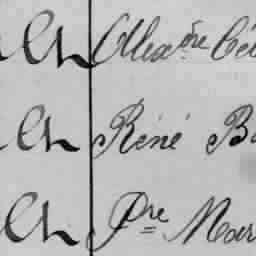 Ch Alexdre Cé
Ch Réné B
Ch Pre Mar